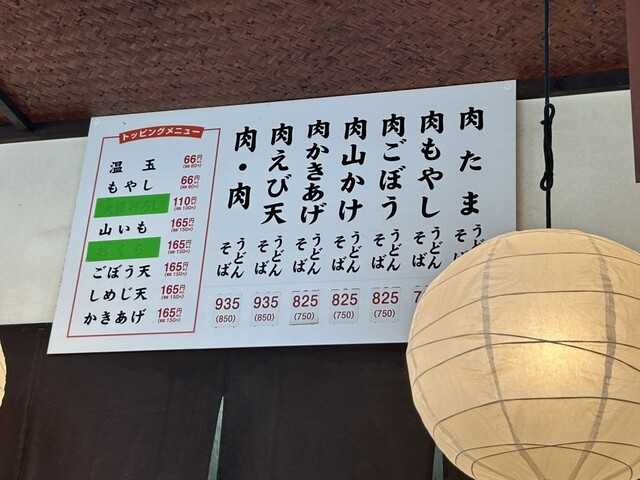 肉たま うどん そば
肉もやし うどん そば 7
肉ごぼう うどん そば 825 (750)
肉山かけ うどん そば 825 (750)
肉かきあげ うどん そば 825 (750)
肉えび天 うどん そば 935 (850)
肉・肉 うどん そば 935 (850)
トッピングメニュー
温玉 66円 (税抜60円)
もやし 66円 (税抜60円)
大根おろし 110円 (税抜100円)
山いも 165円 (税抜150円)
おくら 165円 (税抜150円)
ごぼう天 165円 (税抜150円)
しめじ天 165円 (税抜150円)
かきあげ 165円 (税抜150円)